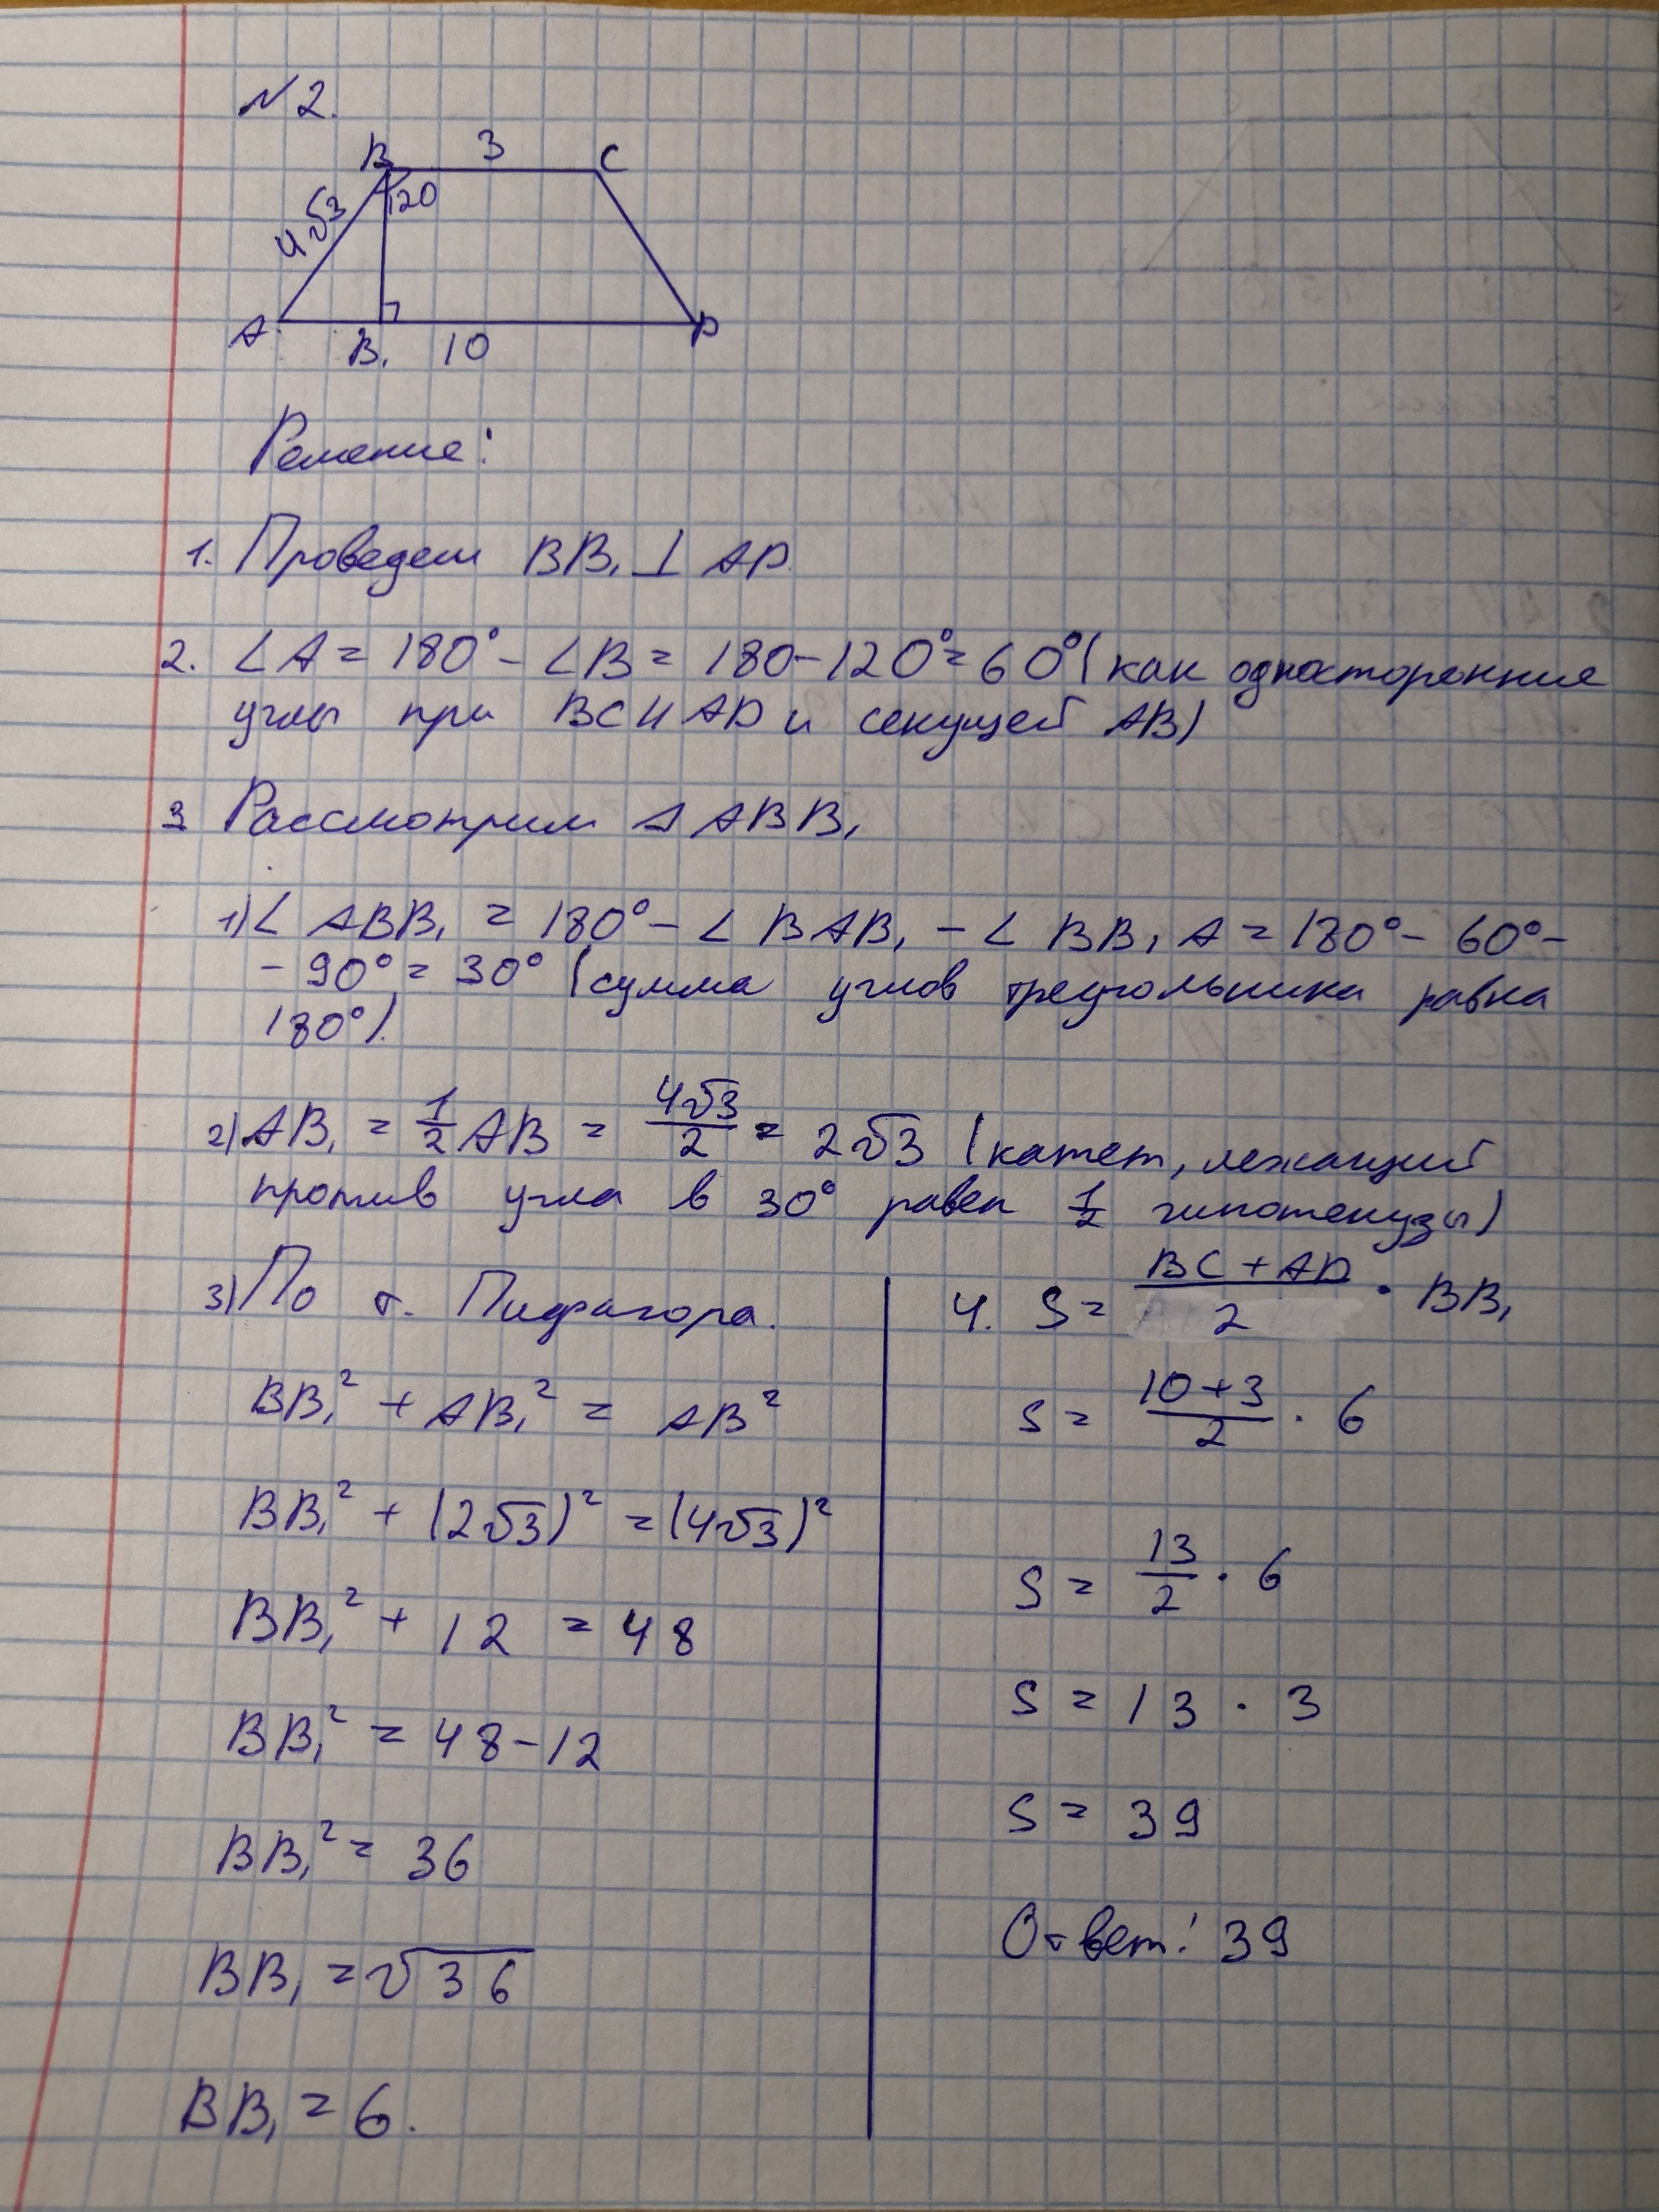 №2.
B 3 C
4√3 120
A B₁ 10 D
Решение:
1. Проведем BB₁ ⊥ AD.
2. ∠A = 180° - ∠B = 180-120°=60° (как односторонние
углы при BC II AD и секущей AB)
3 Рассмотрим △ABB₁
1) ∠ABB₁ = 180° - ∠BAB₁ - ∠BB₁A = 180° - 60° -
- 90° = 30° (сумма углов треугольника равна
180°).
2) AB₁ = 1/2 AB = 4√3/2 = 2√3 (катет, лежащий
против угла в 30° равен 1/2 гипотенузы)
3) По т. Пифагора.
BB₁² + AB₁² = AB²
BB₁² + (2√3)² = (4√3)²
BB₁² + 12 = 48
BB₁² = 48-12
BB₁² = 36
BB₁ = √36
BB₁ = 6.
4. S = (BC+AD)/2 · BB₁
S = (10+3)/2 · 6
S = 13/2 · 6
S = 13 · 3
S = 39
Ответ: 39